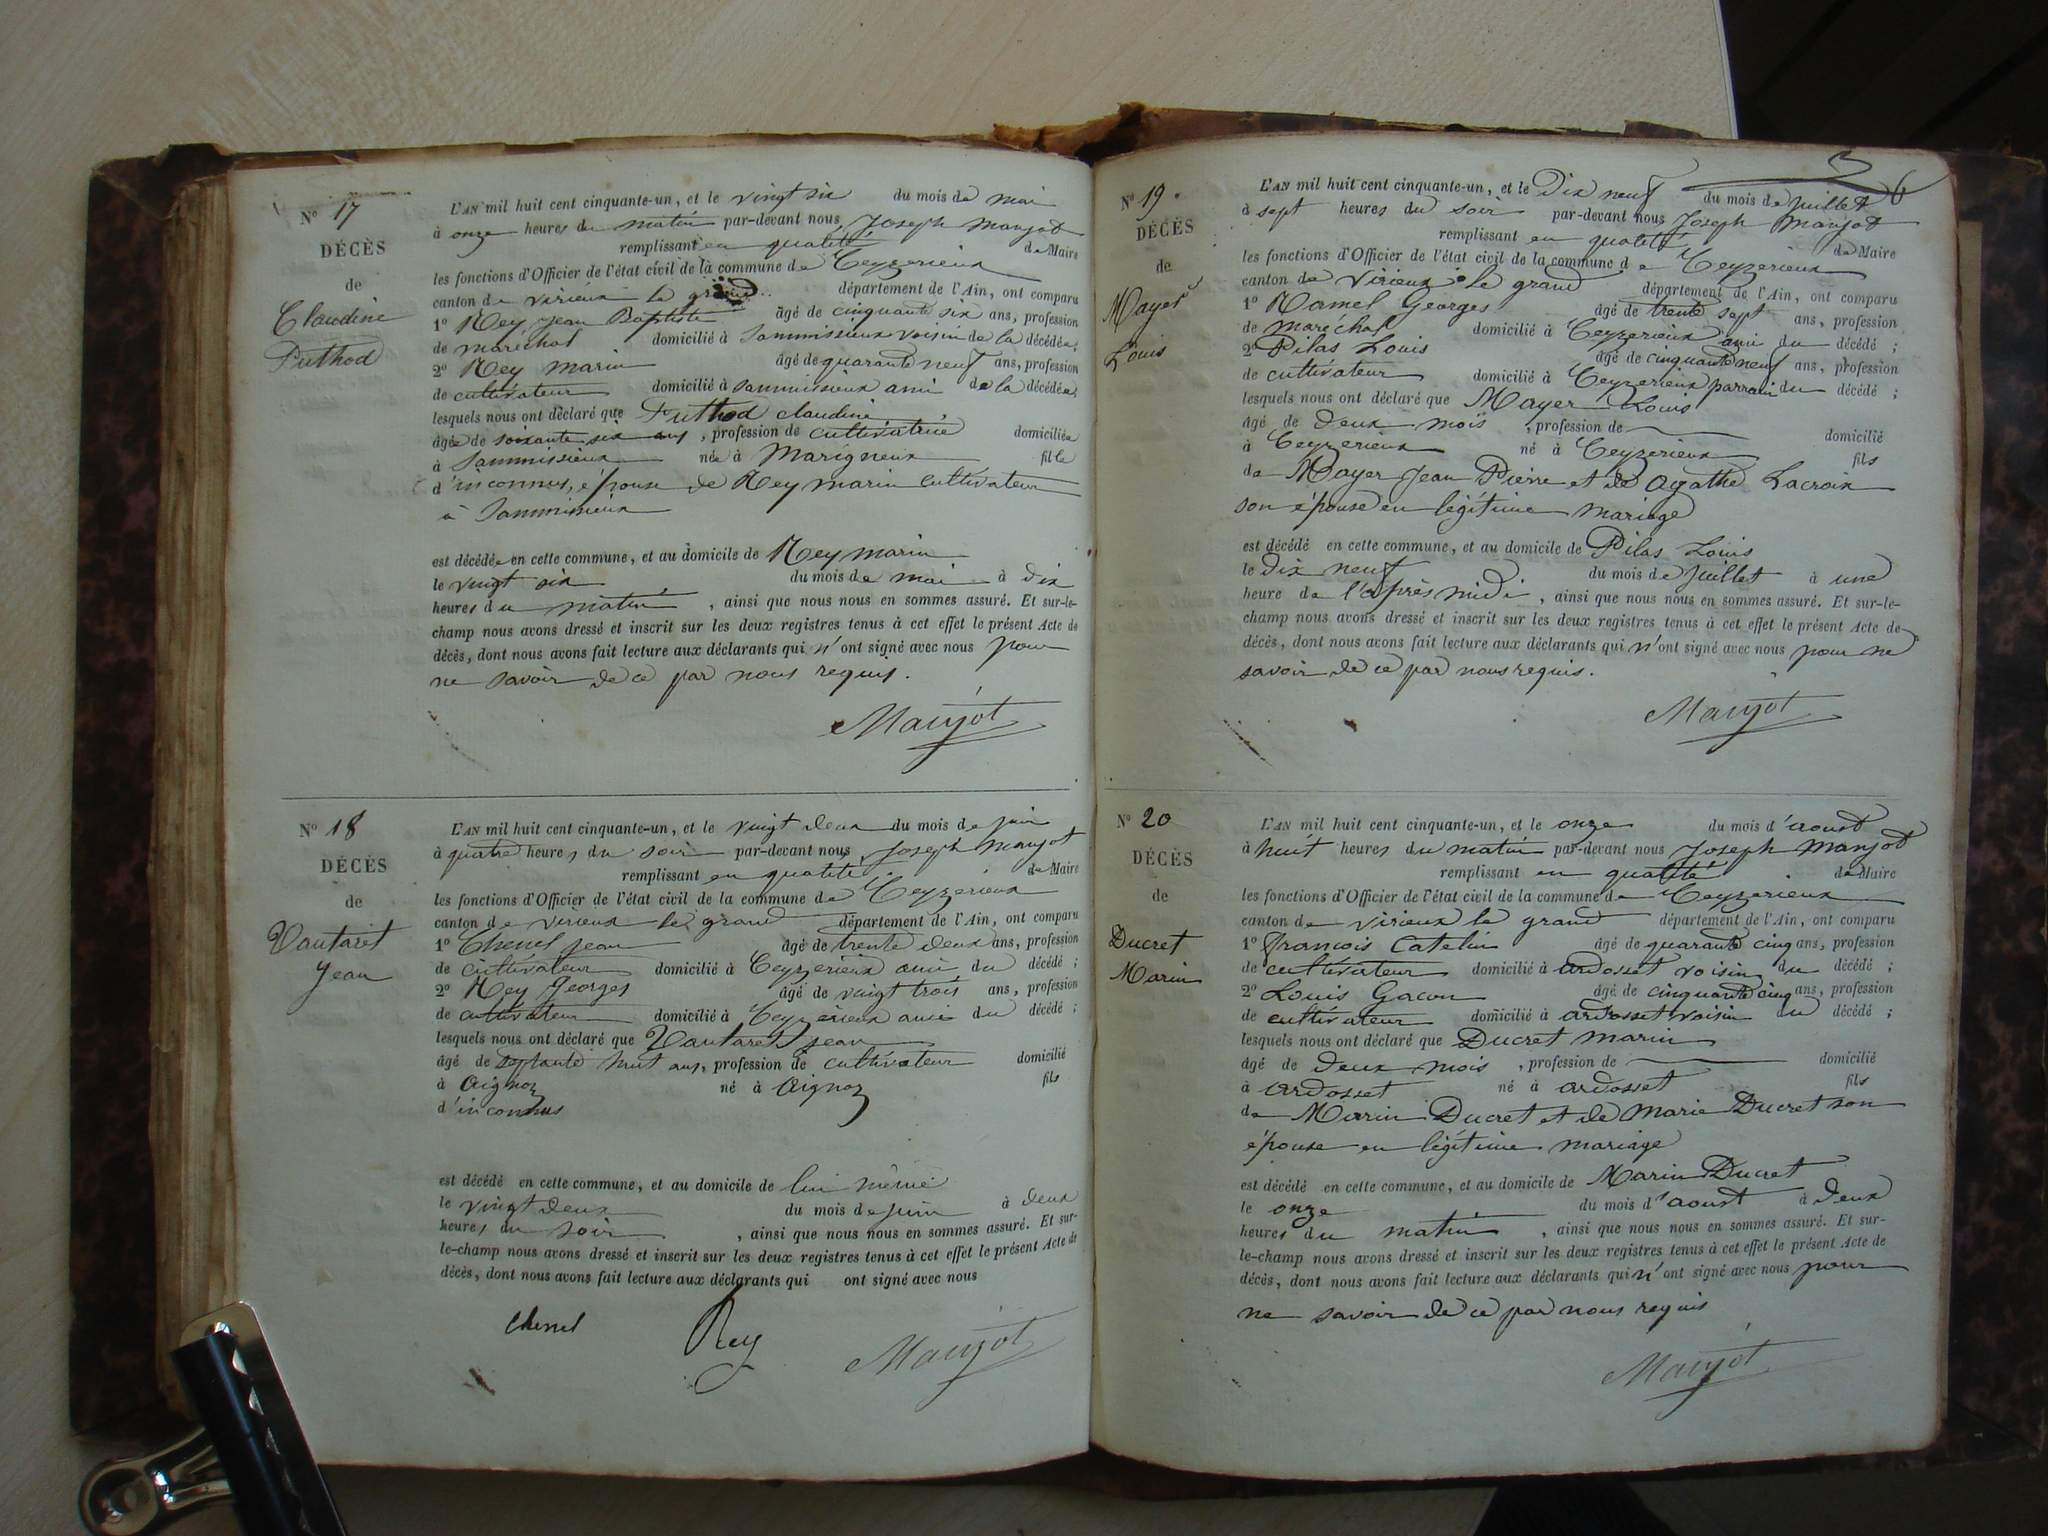 N° 17
DÉCÈS
de
Claudine
Puthod
L'AN mil huit cent cinquante-un, et le vingt six du mois de mai
à onze heures du matin par-devant nous Joseph Manjot
remplissant en qualité de Maire
les fonctions d'Officier de l'état civil de la commune de Ceyzerieux
canton de virieux le grand département de l'Ain, ont comparu
1° Rey Jean Baptiste âgé de cinquante six ans, profession
de maréchal domicilié à Sammissieux voisin de la décédée;
2° Rey marin âgé de quarante neuf ans, profession
de cultivateur domicilié à Sammissieux ami de la décédée;
lesquels nous ont déclaré que Puthod claudine
âgée de soixante six ans, profession de cultivatrice domiciliée
à Sammissieux née à Marigneux fille
d'inconnus, épouse de Rey marin cultivateur
à Sammissieux
est décédée en cette commune, et au domicile de Rey marin
le vingt six du mois de mai à dix
heures du matin, ainsi que nous nous en sommes assuré. Et sur-le-
champ nous avons dressé et inscrit sur les deux registres tenus à cet effet le présent Acte de
décès, dont nous avons fait lecture aux déclarants qui n'ont signé avec nous pour
ne savoir de ce par nous requis.
Manjot
N° 18
DÉCÈS
de
Vautaret
Jean
L'AN mil huit cent cinquante-un, et le vingt deux du mois de juin
à quatre heures du soir par-devant nous Joseph Manjot
remplissant en qualité de Maire
les fonctions d'Officier de l'état civil de la commune de Ceyzerieux
canton de virieux le grand département de l'Ain, ont comparu
1° Chenel jean âgé de trente deux ans, profession
de cultivateur domicilié à Ceyzerieux ami du décédé;
2° Rey Georges âgé de vingt trois ans, profession
de cultivateur domicilié à Ceyzerieux ami du décédé;
lesquels nous ont déclaré que Vautaret jean
âgé de septante huit ans, profession de cultivateur domicilié
à Aignoz né à Aignoz fils
d'inconnus
est décédé en cette commune, et au domicile de lui même
le vingt deux du mois de juin à deux
heures du soir, ainsi que nous nous en sommes assuré. Et sur-
le-champ nous avons dressé et inscrit sur les deux registres tenus à cet effet le présent Acte de
décès, dont nous avons fait lecture aux déclarants qui ont signé avec nous
Chenel Rey Manjot
6
N° 19.
DÉCÈS
de
Mayer
Louis
L'AN mil huit cent cinquante-un, et le Dix neuf du mois de juillet
à sept heures du soir par-devant nous Joseph Manjot
remplissant en qualité de Maire
les fonctions d'Officier de l'état civil de la commune de Ceyzerieux
canton de Virieux le grand département de l'Ain, ont comparu
1° Hamel Georges âgé de trente sept ans, profession
de maréchal domicilié à Ceyzerieux ami du décédé;
2° Pilas Louis âgé de cinquante neuf ans, profession
de cultivateur domicilié à Ceyzerieux parrain du décédé;
lesquels nous ont déclaré que Mayer Louis
âgé de deux mois, profession de domicilié
à Ceyzerieux né à Ceyzerieux fils
de Mayer Jean Pierre et de Agathe Lacroix
son épouse en légitime mariage
est décédé en cette commune, et au domicile de Pilas Louis
le dix neuf du mois de juillet à une
heure de l'après midi, ainsi que nous nous en sommes assuré. Et sur-le-
champ nous avons dressé et inscrit sur les deux registres tenus à cet effet le présent Acte de
décès, dont nous avons fait lecture aux déclarants qui n'ont signé avec nous pour ne
savoir de ce par nous requis.
Manjot
N° 20
DÉCÈS
de
Ducret
Marin
L'AN mil huit cent cinquante-un, et le onze du mois d'aoust
à huit heures du matin par-devant nous Joseph Manjot
remplissant en qualité de Maire
les fonctions d'Officier de l'état civil de la commune de Ceyzerieux
canton de virieux le grand département de l'Ain, ont comparu
1° françois Catelin âgé de quarante cinq ans, profession
de cultivateur domicilié à ardosset voisin du décédé;
2° Louis Gacon âgé de cinquante cinq ans, profession
de cultivateur domicilié à ardosset voisin du décédé;
lesquels nous ont déclaré que Ducret marin
âgé de deux mois, profession de domicilié
à ardosset né à ardosset fils
de Marin Ducret et de Marie Ducret son
épouse en légitime mariage
est décédé en cette commune, et au domicile de Marin Ducret
le onze du mois d'aoust à deux
heures du matin, ainsi que nous nous en sommes assuré. Et sur-
le-champ nous avons dressé et inscrit sur les deux registres tenus à cet effet le présent Acte de
décès, dont nous avons fait lecture aux déclarants qui n'ont signé avec nous pour
ne savoir de ce par nous requis
Manjot